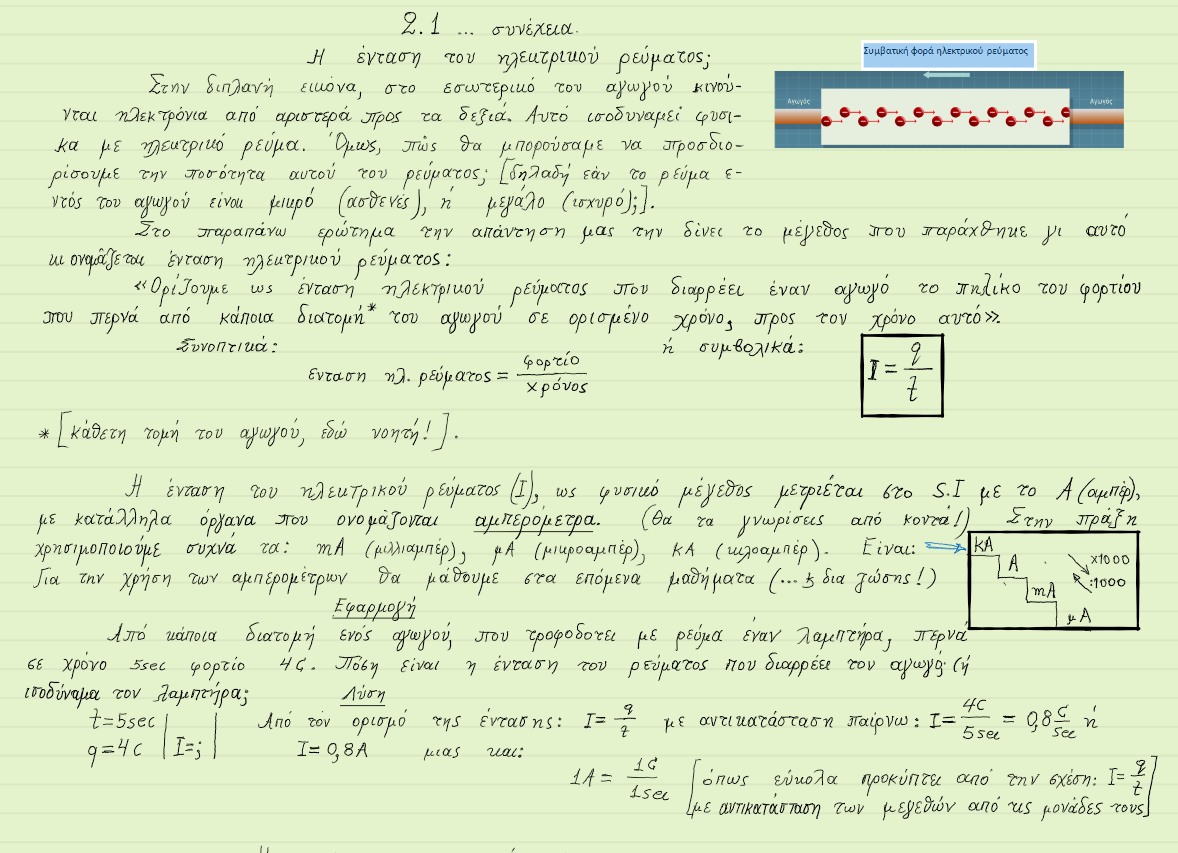 2.1 ... συνέχεια.
Η ένταση του ηλεκτρικού ρεύματος;
Συμβατική φορά ηλεκτρικού ρεύματος
Αγωγός
Αγωγός
Στην διπλανή εικόνα, στο εσωτερικό του αγωγού κινού-
νται ηλεκτρόνια από αριστερά προς τα δεξιά. Αυτό ισοδυναμεί φυσι-
κα με ηλεκτρικό ρεύμα. Όμως, πώς θα μπορούσαμε να προσδιο-
ρίσουμε την ποσότητα αυτού του ρεύματος; [δηλαδή εάν το ρεύμα ε-
ντός του αγωγού είναι μικρό (ασθενές), ή μεγάλο (ισχυρό);].
Στο παραπάνω ερώτημα την απάντηση μας την δίνει το μέγεθος που παράχθηκε γι αυτό
κι ονομάζεται ένταση ηλεκτρικού ρεύματος:
«Ορίζουμε ως ένταση ηλεκτρικού ρεύματος που διαρρέει έναν αγωγό το πηλίκο του φορτίου
που περνά από κάποια διατομή* του αγωγού σε ορισμένο χρόνο, προς τον χρόνο αυτό».
Συνοπτικά: ή συμβολικά:
ενταση ηλ. ρεύματος = φορτίο / χρόνος
I = q / t
* [κάθετη τομή του αγωγού, εδώ νοητή!].
Η ένταση του ηλεκτρικού ρεύματος (I), ως φυσικό μέγεθος μετριέται στο S.I με το A (αμπέρ),
με κατάλληλα όργανα που ονομάζονται αμπερόμετρα. (θα τα γνωρίσεις από κοντά!) Στην πράξη
χρησιμοποιούμε συχνά τα: mA (μιλλιαμπέρ), μA (μικροαμπέρ), kA (κιλοαμπέρ). Είναι:
kA
A
mA
μA
x1000
:1000
Για την χρήση των αμπερομέτρων θα μάθουμε στα επόμενα μαθήματα (... & δια ζώσης!)
Εφαρμογή
Από κάποια διατομή ενός αγωγού, που τροφοδοτει με ρεύμα έναν λαμπτήρα, περνά
σε χρόνο 5sec φορτίο 4C. Πόση είναι η ένταση του ρεύματος που διαρρέει τον αγωγό (ή
ισοδύναμα τον λαμπτήρα;
Λύση
t=5sec
q=4C
I=;
Από τον ορισμό της έντασης: I= q/t με αντικατάσταση παίρνω: I= 4C/5sec = 0,8 C/sec ή
I=0,8A μιας και:
1A = 1C/1sec [όπως εύκολα προκύπτει από την σχέση: I= q/t
με αντικατάσταση των μεγεθών από τις μονάδες τους]